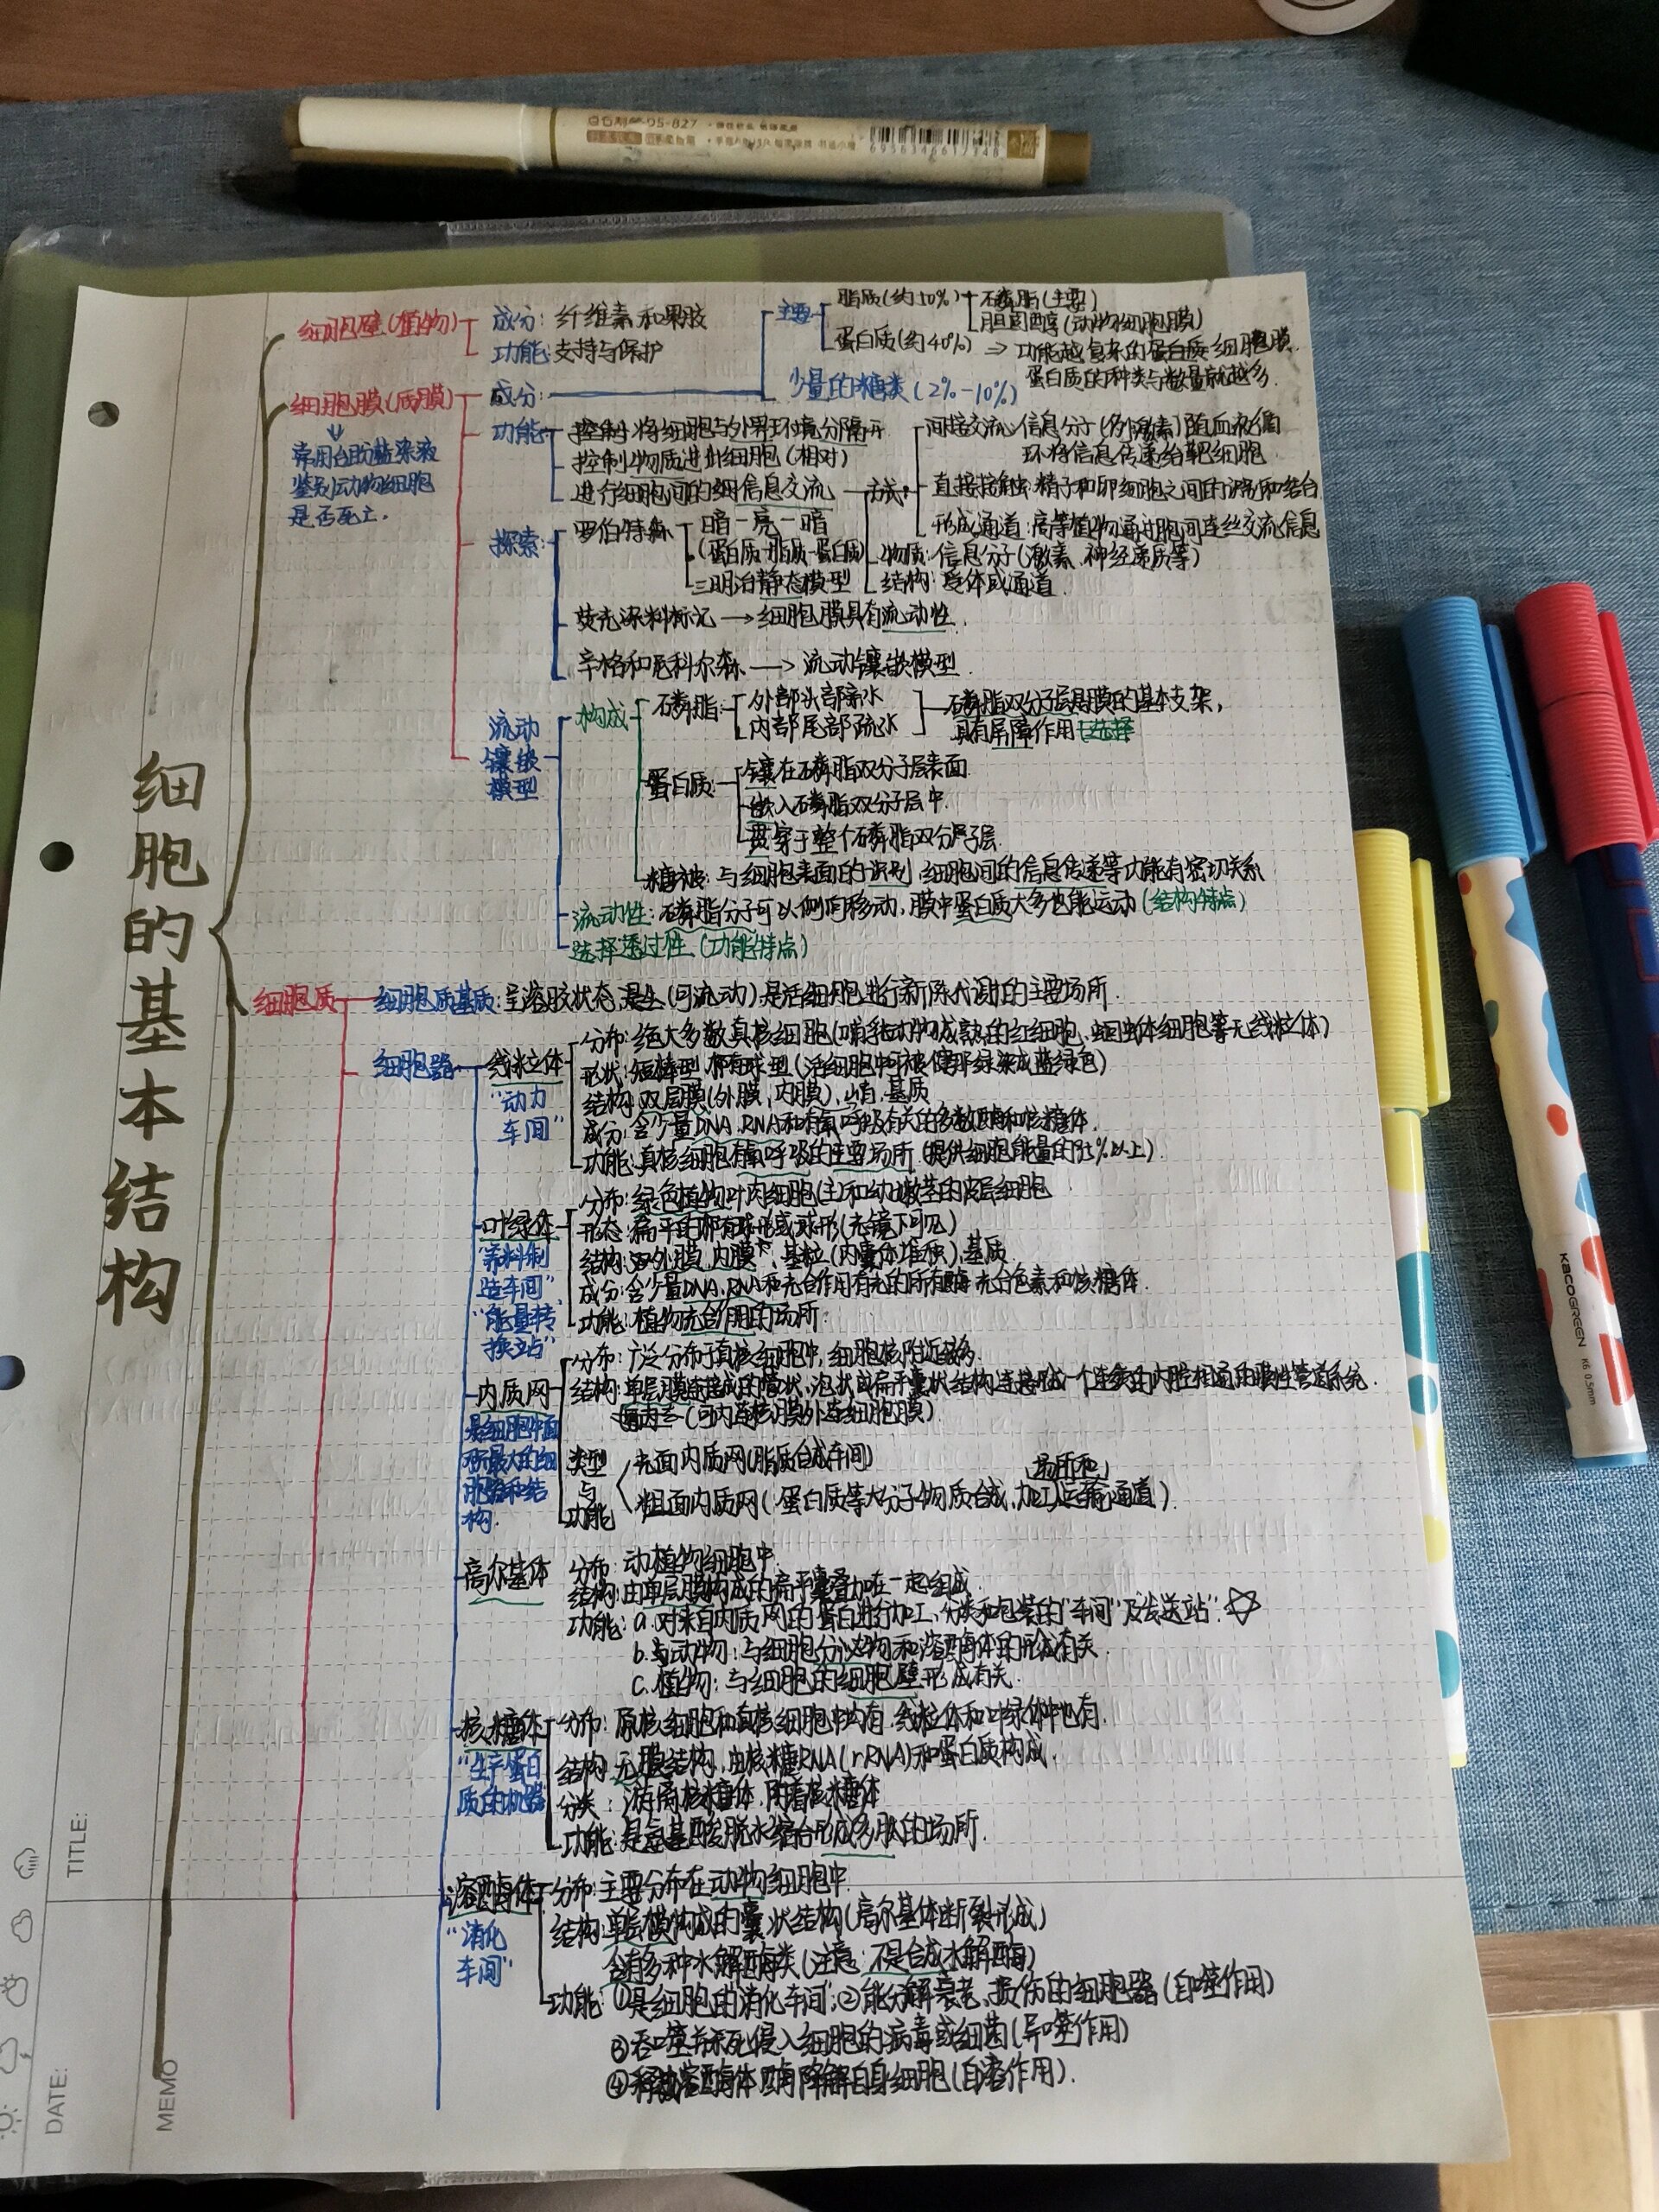 细胞的基本结构
细胞壁(植物)
成分: 纤维素和果胶
功能: 支持与保护
细胞膜(质膜)
常用台盼蓝染液
鉴别动物细胞
是否死亡.
成分:
主要
脂质(约50%)
磷脂(主要)
胆固醇(动物细胞膜)
蛋白质(约40%) ⇒ 功能越复杂的蛋白质细胞膜,
蛋白质的种类与数量就越多.
少量的糖类(2%-10%)
功能
将细胞与外界环境分隔开
控制物质进出细胞(相对)
进行细胞间的信息交流
方式:
间接交流:信息分子(多激素)随血液循
环将信息传递给靶细胞
直接接触:精子和卵细胞之间的识别和结合
形成通道:高等植物通过胞间连丝交流信息
物质:信息分子(激素、神经递质等)
结构:受体或通道
探索:
罗伯特森
暗-亮-暗
(蛋白质-脂质-蛋白质)
三明治静态模型
荧光染料标记→细胞膜具有流动性.
辛格和尼科尔森→流动镶嵌模型.
流动
镶嵌
模型
构成
磷脂:
外部头部亲水
内部尾部疏水
磷脂双分子层是膜的基本支架,
具有屏障作用
蛋白质:
镶在磷脂双分子层表面
嵌入磷脂双分子层中.
贯穿于整个磷脂双分子层
糖被: 与细胞表面的识别、细胞间的信息传递等功能有密切关系
流动性:磷脂分子可以侧向移动,膜中蛋白质大多也能运动(结构特点)
选择透过性(功能特点)
细胞质
细胞质基质:呈溶胶状态,是(可流动)是活细胞进行新陈代谢的主要场所.
细胞器
线粒体
"动力
车间"
分布:绝大多数真核细胞(哺乳动物成熟的红细胞、蛔虫体细胞等无线粒体)
形状:短棒型(活细胞中可被健那绿染成蓝绿色)
结构:双层膜(外膜,内膜),嵴,基质
成分:含少量DNA、RNA和有氧呼吸有关的多数酶和核糖体.
功能:真核细胞有氧呼吸的主要场所(提供细胞能量的95%以上).
叶绿体
"养料制
造车间"
"能量转
换站"
分布:绿色植物叶肉细胞(主)和幼嫩茎的皮层细胞
形态:扁平的椭球形或球形(光镜下可见)
结构:外膜、内膜、基粒(内囊体堆积)、基质
成分:含少量DNA、RNA和光合作用有关的所有酶、光合色素和核糖体.
功能:植物光合作用的场所.
内质网
是细胞中面
积最大的细
胞器和结
构.
分布:广泛分布于真核细胞中,细胞核附近较多.
结构:单层膜连接成的管状、泡状或扁平囊状结构连接成一个连续的内腔相通的膜性管道系统.
(可内连核膜外连细胞膜)
类型
与
功能
光面内质网(脂质合成车间)
粗面内质网(蛋白质等大分子物质合成、加工场所和运输通道).
高尔基体
分布:动植物细胞中.
结构:由单层膜构成的扁平囊叠加在一起组成
功能:a.对来自内质网的蛋白进行加工、分类和包装的"车间"及"发送站".☆
b.动物:与细胞分泌物和溶酶体的形成有关.
c.植物:与细胞的细胞壁形成有关.
核糖体
"生产蛋白
质的机器
分布:原核细胞和真核细胞中均有,线粒体和叶绿体中也有.
结构:无膜结构,由核糖RNA(rRNA)和蛋白质构成.
分类:游离核糖体、附着核糖体
功能:是氨基酸脱水缩合形成多肽的场所.
溶酶体
"消化
车间"
分布:主要分布在动物细胞中.
结构:单层膜构成的囊状结构(高尔基体断裂形成)
含有多种水解酶类(注意:不是合成水解酶)
功能:①是细胞的消化车间;②能分解衰老、损伤的细胞器(自噬作用)
③吞噬并杀死侵入细胞的病毒或细菌(异噬作用)
④释放溶酶体酶降解自身细胞(自溶作用).
TITLE:
DATE:
MEMO
KACOGREEN
K6 0.5mm